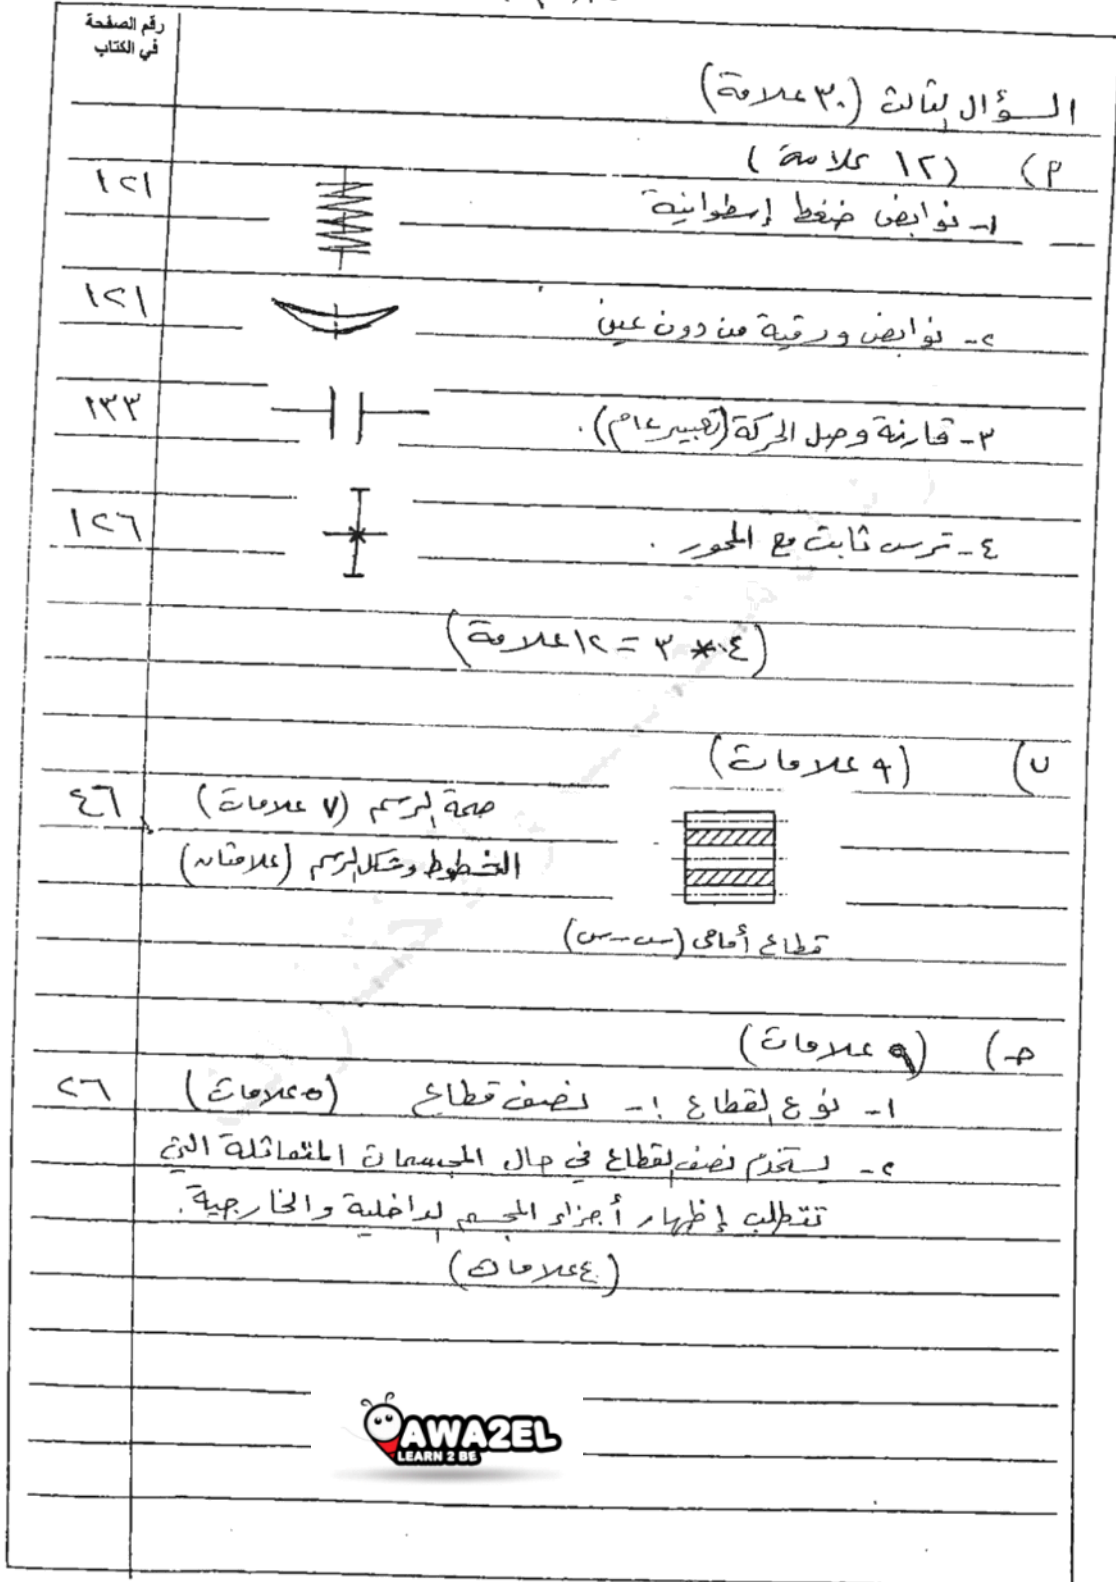 رقم الصفحة
في الكتاب
السؤال الثالث (٣٠ علامة)
أ) (١٢ علامة)
١- نوابض ضغط إسطوانية ١٢١
٢- نوابض ورقية من دون عين ١٢١
٣- قارنة وصل الحركة (تعبير عام). ١٣٣
٤- ترس ثابت مع المحور. ١٢٦
(٤ * ٣ = ١٢ علامة)
ب) (٩ علامات)
صحة الرسم (٧ علامات) ٤٦
الخطوط وشكل الرسم (علامتان)
قطاع أمامي (س-س)
ج) (٩ علامات)
١- نوع القطاع :- نصف قطاع (٥ علامات) ٢٦
٢- يستخدم نصف القطاع في حال المجسمات المتماثلة التي
تتطلب إظهار أجزاء المجسم الداخلية والخارجية.
(٤ علامات)
AWA2EL
LEARN 2 BE